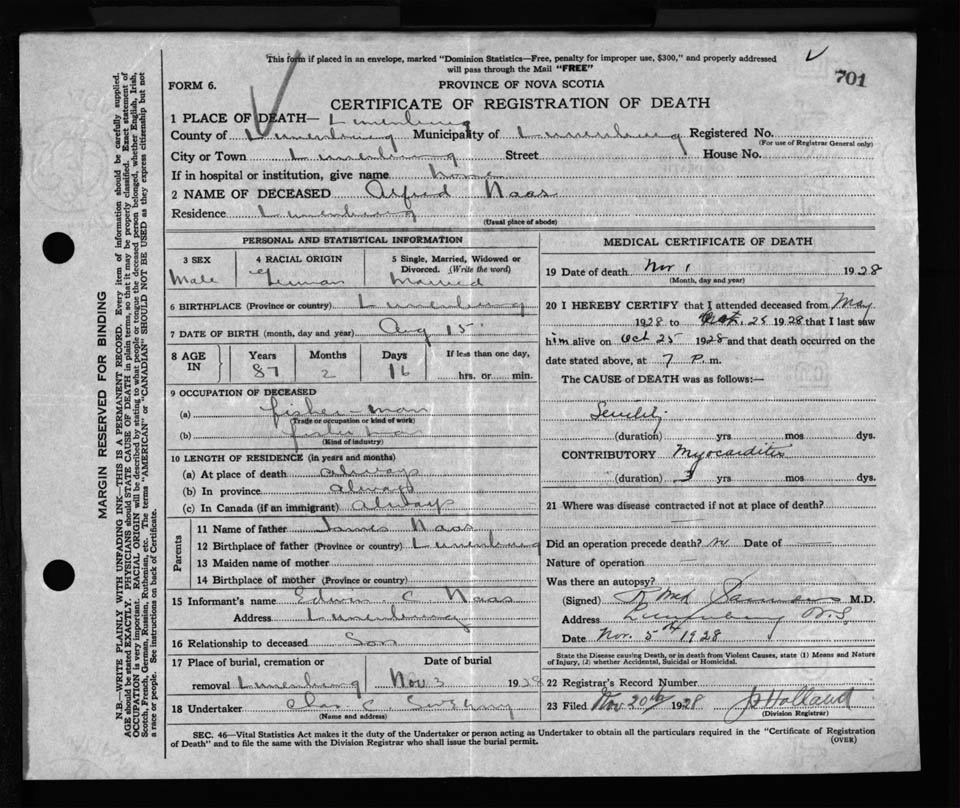 This form if placed in an envelope, marked "Dominion Statistics—Free, penalty for improper use, $300," and properly addressed
will pass through the Mail "FREE"
701
FORM 6. PROVINCE OF NOVA SCOTIA
CERTIFICATE OF REGISTRATION OF DEATH
1 PLACE OF DEATH— Lunenburg
County of Lunenburg Municipality of Lunenburg Registered No.
(For use of Registrar General only)
City or Town Lunenburg Street House No.
If in hospital or institution, give name home
2 NAME OF DECEASED Alfred Naas
Residence Lunenburg
(Usual place of abode)
PERSONAL AND STATISTICAL INFORMATION
3 SEX 4 RACIAL ORIGIN 5 Single, Married, Widowed or
Divorced. (Write the word)
Male German Married
6 BIRTHPLACE (Province or country) Lunenburg
7 DATE OF BIRTH (month, day and year) Aug 15
8 AGE IN Years Months Days If less than one day,
87 2 16 hrs. or min.
9 OCCUPATION OF DECEASED
(a) fisher-man
(Trade or occupation or kind of work)
(b)
(Kind of industry)
10 LENGTH OF RESIDENCE (in years and months)
(a) At place of death always
(b) In province always
(c) In Canada (if an immigrant) always
Parents
11 Name of father James Naas
12 Birthplace of father (Province or country) Lunenburg
13 Maiden name of mother
14 Birthplace of mother (Province or country)
15 Informant's name Edwin C Naas
Address Lunenburg
16 Relationship to deceased Son
17 Place of burial, cremation or Date of burial
removal Lunenburg Nov 3 1928
18 Undertaker Chas. C.
(Name and address)
MEDICAL CERTIFICATE OF DEATH
19 Date of death Nov 1 1928
(Month, day and year)
20 I HEREBY CERTIFY that I attended deceased from May
1928 to Oct. 25 1928 that I last saw
him alive on Oct 25 1928 and that death occurred on the
date stated above, at 7 P. m.
The CAUSE of DEATH was as follows:—
Senility
(duration) yrs mos dys.
CONTRIBUTORY Myocarditis
(duration) 3 yrs mos dys.
21 Where was disease contracted if not at place of death?
Did an operation precede death? no Date of
Nature of operation
Was there an autopsy?
(Signed) M.D.
Address Lunenburg N.S.
Date Nov. 5th 1928
State the Disease causing Death, or in death from Violent Causes, state (1) Means and Nature
of Injury, (2) whether Accidental, Suicidal or Homicidal.
22 Registrar's Record Number
23 Filed Nov. 20th 1928 Holland
(Division Registrar)
SEC. 46—Vital Statistics Act makes it the duty of the Undertaker or person acting as Undertaker to obtain all the particulars required in the "Certificate of Registration
of Death" and to file the same with the Division Registrar who shall issue the burial permit.
(OVER)
MARGIN RESERVED FOR BINDING
N.B.—WRITE PLAINLY WITH UNFADING INK—THIS IS A PERMANENT RECORD. Every item of information should be carefully supplied.
AGE should be stated EXACTLY. PHYSICIANS should STATE CAUSE OF DEATH in plain terms, so that it may be properly classified. Exact statement of
OCCUPATION is very important. RACIAL ORIGIN will be described by stating to what people or tongue the deceased person belonged, whether English, Irish,
Scotch, French, German, Russian, Ruthenian, etc. The terms "AMERICAN" or "CANADIAN" SHOULD NOT BE USED as they express citizenship but not
a race or people. See instructions on back of Certificate.